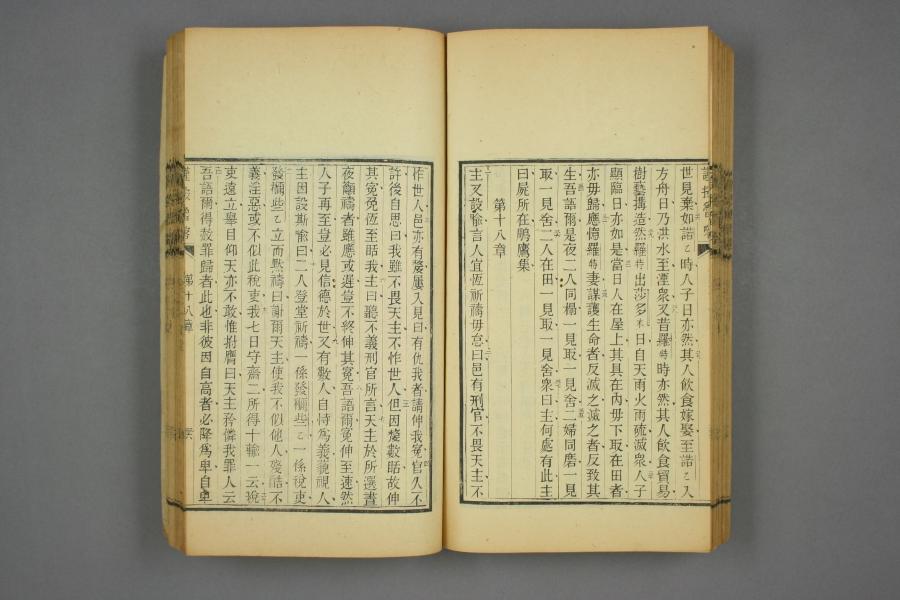 世見棄如諾〻時人子日亦然其人飲食嫁娶至諾〻入
方舟日乃洪水至湮衆又昔羅時亦然其人飲食貿易
樹藝搆造然羅出莎多日自天雨火雨硫滅衆人子
顯臨日亦如是當日人在屋上其具在內毋下取在田者
亦毋歸應憶羅妻謀護生命者反滅之滅者反致其
生吾語爾是夜二人同榻一見取一見舍二婦同磨一見
取一見舍二人在田一見取一見舍衆曰主何處有此主
曰屍所在鵰鷹集
第十八章
主又設喻言人宜恆祈禱毋怠曰邑有刑官不畏天主不
怍世人邑亦有嫠屢入見曰有仇我者請伸我冤官久不
許後自思曰我雖不畏天主不怍世人但因嫠數聒故伸
其冤免恆至聒我主曰聽不義刑官所言天主於所選晝
夜籲禱者雖應或遲豈不終伸其冤吾語爾冤伸至速然
人子再至豈必見信德於世又有數人自恃為義藐視人
主因設斯喻曰二人登堂祈禱一係發欄些〻一係稅吏
發欄些〻立而默禱曰謝爾天主使我不似他人殘酷不
義淫惡或不似此稅吏我七日守齋二所得十輸一云稅
吏遠立舉目仰天亦不敢惟拊膺曰天主矜憐我罪人云
吾語爾得赦罪歸者此也非彼因自高者必降為卑自卑
第十八章